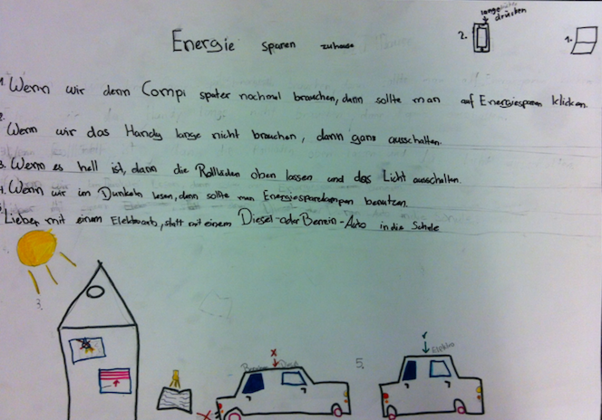 lange drücken
2.
1.
Energie sparen zuhause
1. Wenn wir denn Compi später nochmal brauchen, dann sollte man auf Energiesparen klicken.
2. Wenn wir das Handy lange nicht brauchen, dann ganz ausschalten.
3. Wenn es hell ist, dann die Rollläden oben lassen und das Licht ausschalten.
4. Wenn wir im Dunkeln lesen, dann sollte man Energiesparlampen benutzen.
Lieber mit einem Elektroauto, statt mit einem Diesel-oder Benzin-Auto in die Schule
3.
5.
Elektro